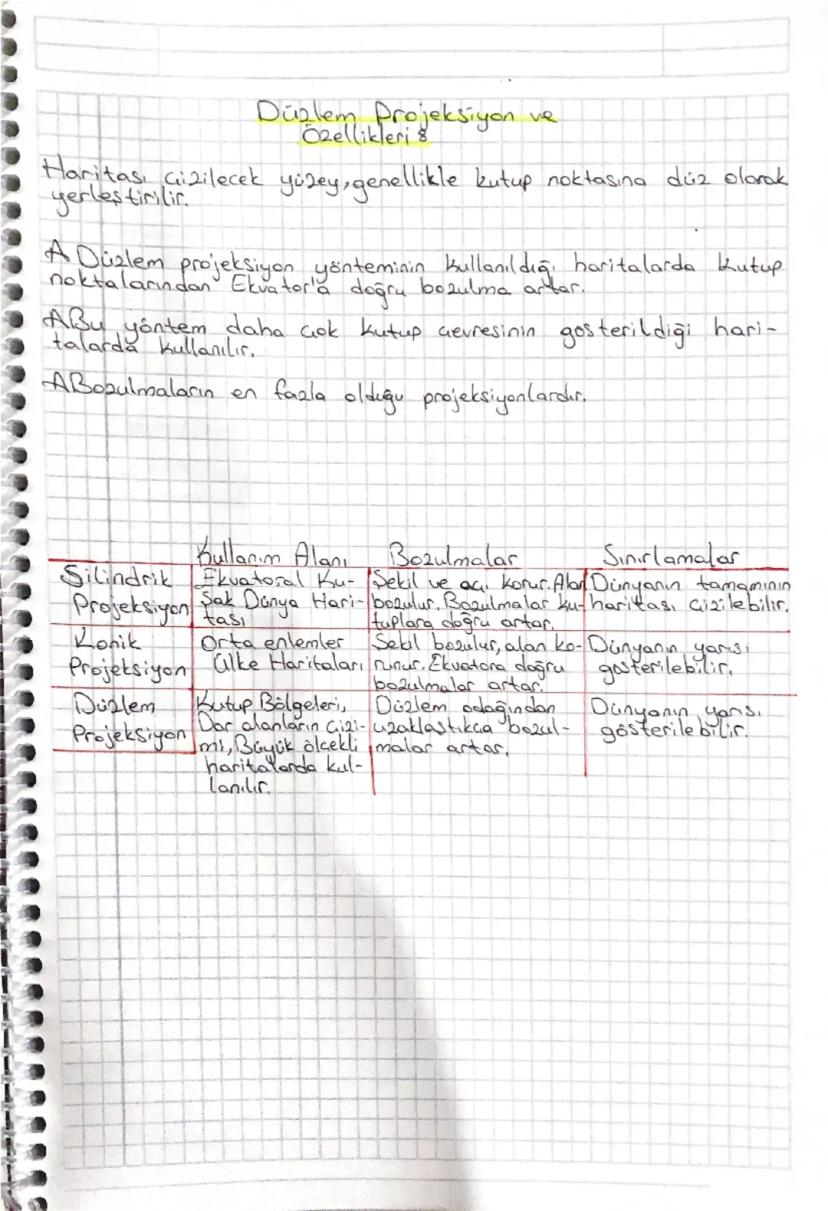 Düzlem Projeksiyon ve
Özellikleri :
Haritası çizilecek yüzey, genellikle kutup noktasına düz olarak
yerleştirilir.
A Düzlem projeksiyon yönteminin kullanıldığı haritalarda kutup
noktalarından Ekvator'a doğru bozulma artar.
A Bu yöntem daha çok kutup çevresinin gösterildiği hari-
talarda kullanılır.
A Bozulmaların en fazla olduğu projeksiyonlardır.
Kullanım Alanı Bozulmalar Sınırlamalar
Silindrik
Projeksiyon
Ekvatoral Ku-
şak Dünya Hari-
tası
Şekil ve açı korur. Alan
bozulur. Bozulmalar ku-
tuplara doğru artar.
Dünyanın tamamının
haritası çizilebilir.
Konik
Projeksiyon
Orta enlemler
Ülke Haritaları
Şekil bozulur, alan ko-
runur. Ekvatora doğru
bozulmalar artar.
Dünyanın yarısı
gösterilebilir.
Düzlem
Projeksiyon
Kutup Bölgeleri,
Dar alanların çizi-
mi, Büyük ölçekli
haritalarda kul-
lanılır.
Düzlem odağından
uzaklaştıkça bozul-
malar artar.
Dünyanın yarısı
gösterilebilir.